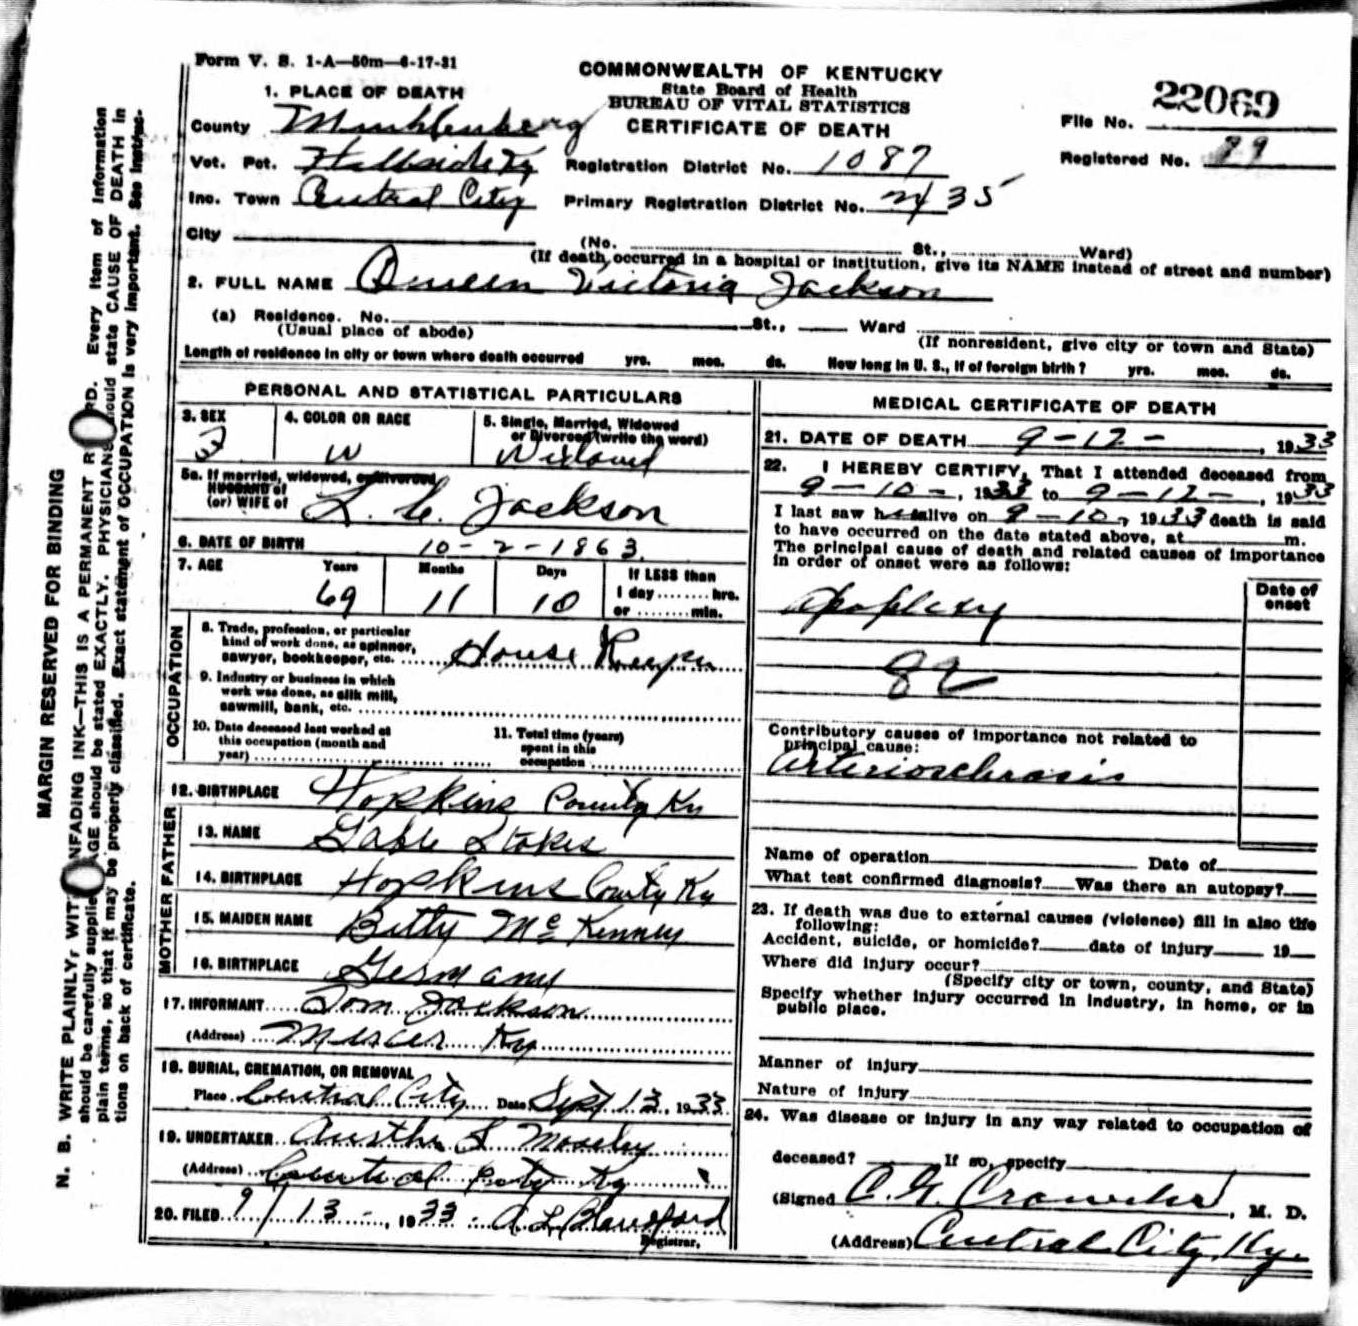 Form V. S. 1-A—50m—6-17-31
COMMONWEALTH OF KENTUCKY
State Board of Health
BUREAU OF VITAL STATISTICS
CERTIFICATE OF DEATH
22069
File No.
Registered No.
1. PLACE OF DEATH
County Muhlenberg
Vot. Pct. Hillside Ky Registration District No. 1087
Inc. Town Central City Primary Registration District No. 2435
City (No. St., Ward)
(If death occurred in a hospital or institution, give its NAME instead of street and number)
2. FULL NAME Queen Victoria Jackson
(a) Residence. No. St., Ward
(Usual place of abode) (If nonresident, give city or town and State)
Length of residence in city or town where death occurred yrs. mos. ds. How long in U. S., if of foreign birth? yrs. mos. ds.
PERSONAL AND STATISTICAL PARTICULARS
3. SEX F
4. COLOR OR RACE W
5. Single, Married, Widowed
or Divorced (write the word)
Widowed
5a. If married, widowed, or divorced
HUSBAND of
(or) WIFE of L. C. Jackson
6. DATE OF BIRTH 10-2-1863
7. AGE Years Months Days If LESS than
1 day........hrs.
or ........min.
69 11 10
OCCUPATION
8. Trade, profession, or particular
kind of work done, as spinner,
sawyer, bookkeeper, etc. House Keeper
9. Industry or business in which
work was done, as silk mill,
sawmill, bank, etc.
10. Date deceased last worked at
this occupation (month and
year)
11. Total time (years)
spent in this
occupation
12. BIRTHPLACE Hopkins County Ky
FATHER
13. NAME Gabe Stokes
14. BIRTHPLACE Hopkins County Ky
MOTHER
15. MAIDEN NAME Bitty McKenney
16. BIRTHPLACE Germany
17. INFORMANT Tom Jackson
(Address) Mercer Ky
18. BURIAL, CREMATION, OR REMOVAL
Place Central City Date Sept 13, 1933
19. UNDERTAKER L Moseley
(Address) Central City Ky
20. FILED 9/13-, 1933- A L Blandford
Registrar.
MEDICAL CERTIFICATE OF DEATH
21. DATE OF DEATH 9-12-, 1933
22. I HEREBY CERTIFY, That I attended deceased from
9-10-, 1933 to 9-12-, 1933
I last saw her alive on 9-10-, 1933 death is said
to have occurred on the date stated above, at m.
The principal cause of death and related causes of importance
in order of onset were as follows:
Date of
onset
Apoplexy
82
Contributory causes of importance not related to
principal cause:
Arterioschrosis
Name of operation Date of
What test confirmed diagnosis? Was there an autopsy?
23. If death was due to external causes (violence) fill in also the
following:
Accident, suicide, or homicide? date of injury 19
Where did injury occur?
(Specify city or town, county, and State)
Specify whether injury occurred in industry, in home, or in
public place.
Manner of injury
Nature of injury
24. Was disease or injury in any way related to occupation of
deceased? If so, specify
(Signed C. G. , M. D.
(Address) Central City, Ky.
MARGIN RESERVED FOR BINDING
N. B. WRITE PLAINLY, WITH UNFADING INK—THIS IS A PERMANENT RECORD. Every item of information
should be carefully supplied. AGE should be stated EXACTLY. PHYSICIANS should state CAUSE OF DEATH in
plain terms, so that it may be properly classified. Exact statement of OCCUPATION is very important. See instruc-
tions on back of certificate.